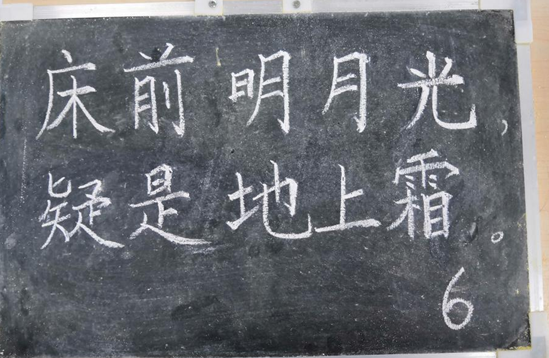 床前明月光，
疑是地上霜。
6